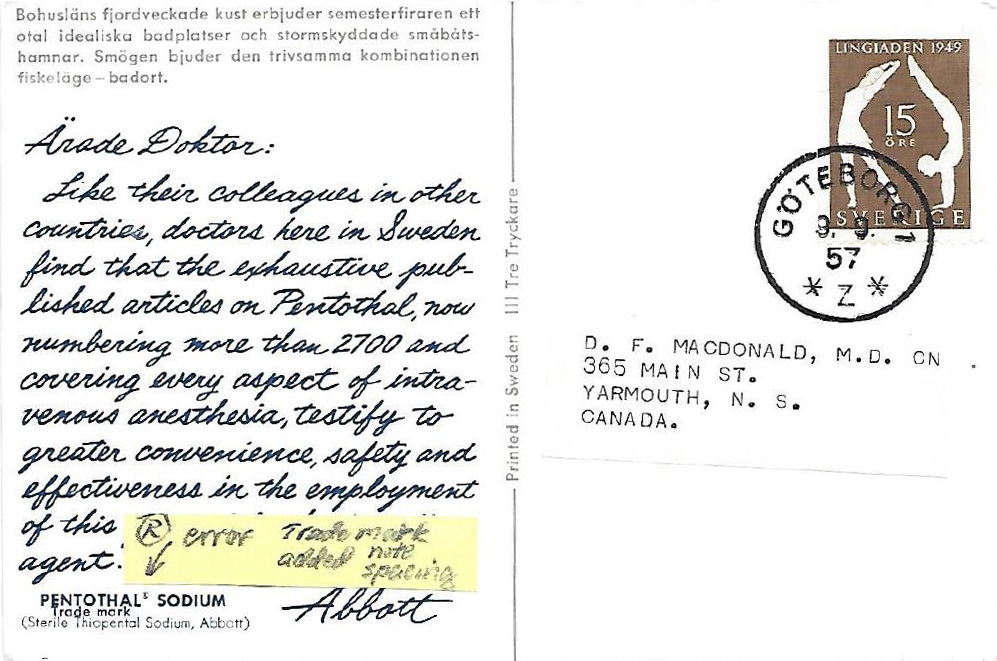 Bohusläns fjordveckade kust erbjuder semesterfiraren ett
otal idealiska badplatser och stormskyddade småbåts-
hamnar. Smögen bjuder den trivsamma kombinationen
fiskeläge – badort.
Ärade Doktor:
Like their colleagues in other
countries, doctors here in Sweden
find that the exhaustive pub-
lished articles on Pentothal, now
numbering more than 2700 and
covering every aspect of intra-
venous anesthesia, testify to
greater convenience, safety and
effectiveness in the employment
of this
agent.
® error Trade mark
added note
spacing
Abbott
PENTOTHAL® SODIUM
Trade mark
(Sterile Thiopental Sodium, Abbott)
Printed in Sweden III Tre Tryckare
LINGIADEN 1949
15
ÖRE
SVERIGE
GÖTEBORG 1
57
* Z *
D. F. MACDONALD, M.D. CN
365 MAIN ST.
YARMOUTH, N. S.
CANADA.